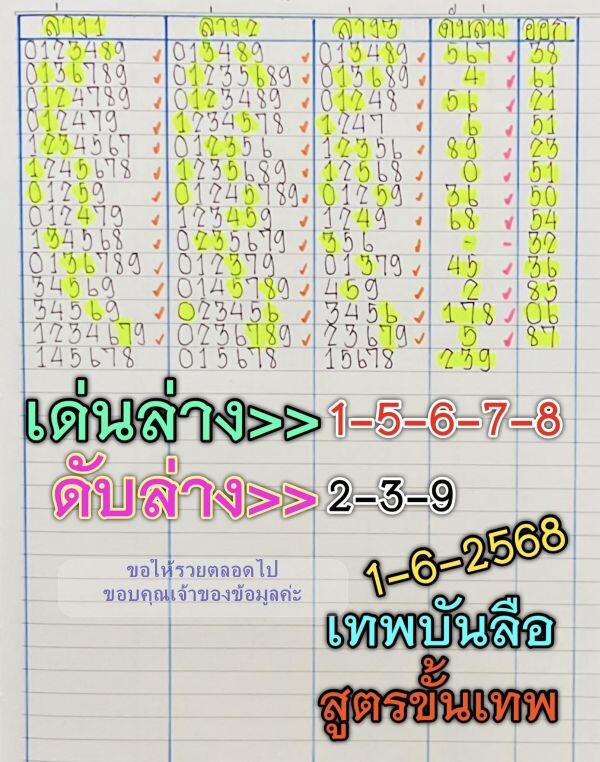 ล่าง1 ล่าง2 ล่าง3 ดับล่าง ออก
0123489 013489 013489 567 38
0136789 01235689 013689 4 61
0124789 0123489 01248 56 21
012479 1234578 1247 6 51
1234567 012356 12356 89 23
1245678 1235689 12568 0 51
01259 01245789 01259 36 50
012479 123459 1249 68 54
134568 0235679 356 - - 32
0136789 012379 01379 45 36
34569 0145789 459 2 85
34569 023456 3456 178 06
1234679 0236789 23679 5 87
145678 015678 15678 239
เด่นล่าง>> 1-5-6-7-8
ดับล่าง>> 2-3-9
1-6-2568
ขอให้รวยตลอดไป
ขอบคุณเจ้าของข้อมูลค่ะ
เทพบันลือ
สูตรขั้นเทพ